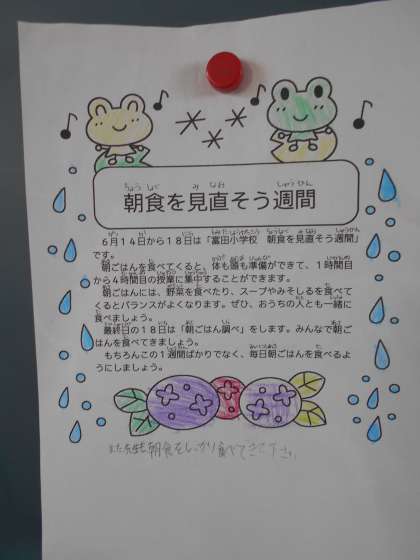 朝食を見直そう週間
6月14日から18日は「富田小学校　朝食を見直そう週間」
です。
朝ごはんを食べてくると、体も頭も準備ができて、1時間目
から4時間目の授業に集中することができます。
朝ごはんには、野菜を食べたり、スープやみそしるを食べて
くるとバランスがよくなります。ぜひ、おうちの人とも一緒に
食べましょう。
最終日の18日は「朝ごはん調べ」をします。みんなで朝ご
はんを食べてきましょう。
もちろんこの1週間ばかりでなく、毎日朝ごはんを食べるよ
うにしましょう。
朝食をしっかり食べてきて下さい